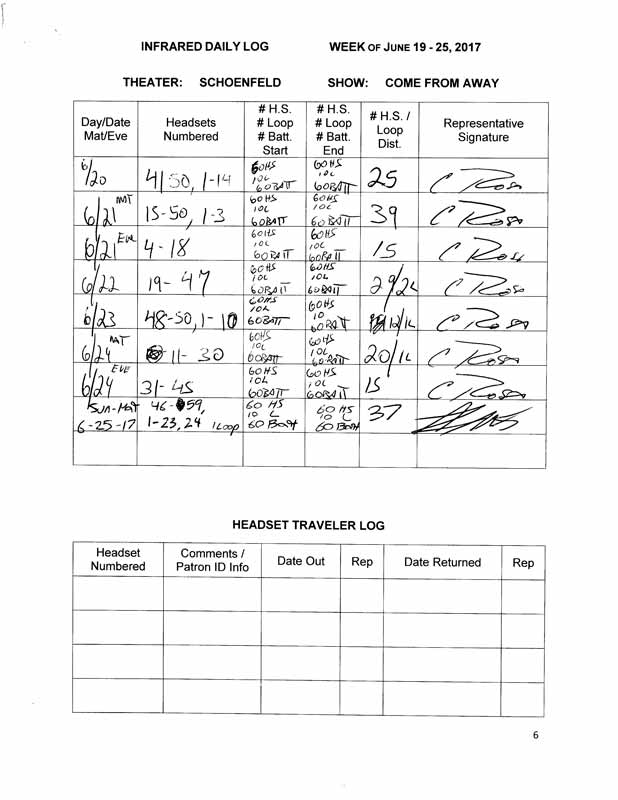 INFRARED DAILY LOG WEEK OF JUNE 19 - 25, 2017
THEATER: SCHOENFELD SHOW: COME FROM AWAY
Day/Date Mat/Eve Headsets Numbered # H.S. # Loop # Batt. Start # H.S. # Loop # Batt. End # H.S. / Loop Dist. Representative Signature
6/20 4150, 1-14 60HS 10L 60BATT 60HS 10L 60BATT 25 C Ross
6/21 MAT 15-50, 1-3 60HS 10L 60BATT 60HS 10L 60BATT 39 C Ross
6/21 EVE 4-18 60HS 10L 60BATT 60HS 10L 60BATT 15 C Ross
6/22 19-47 60HS 10L 60BATT 60HS 10L 60BATT 29/2L C Ross
6/23 48-50, 1-10 60HS 10L 60BATT 60HS 10 60BATT 12/1L C Ross
6/24 MAT 11-30 60HS 10L 60BATT 60HS 10L 60BATT 20/1L C Ross
6/24 EVE 31-45 60HS 10L 60BATT 60HS 10L 60BATT 15 C Ross
Sun-Mat 6-25-17 46-59, 1-23, 24 1Loop 60 HS 10 L 60 Batt 60 HS 10 L 60 Batt 37
HEADSET TRAVELER LOG
Headset Numbered Comments / Patron ID Info Date Out Rep Date Returned Rep
6